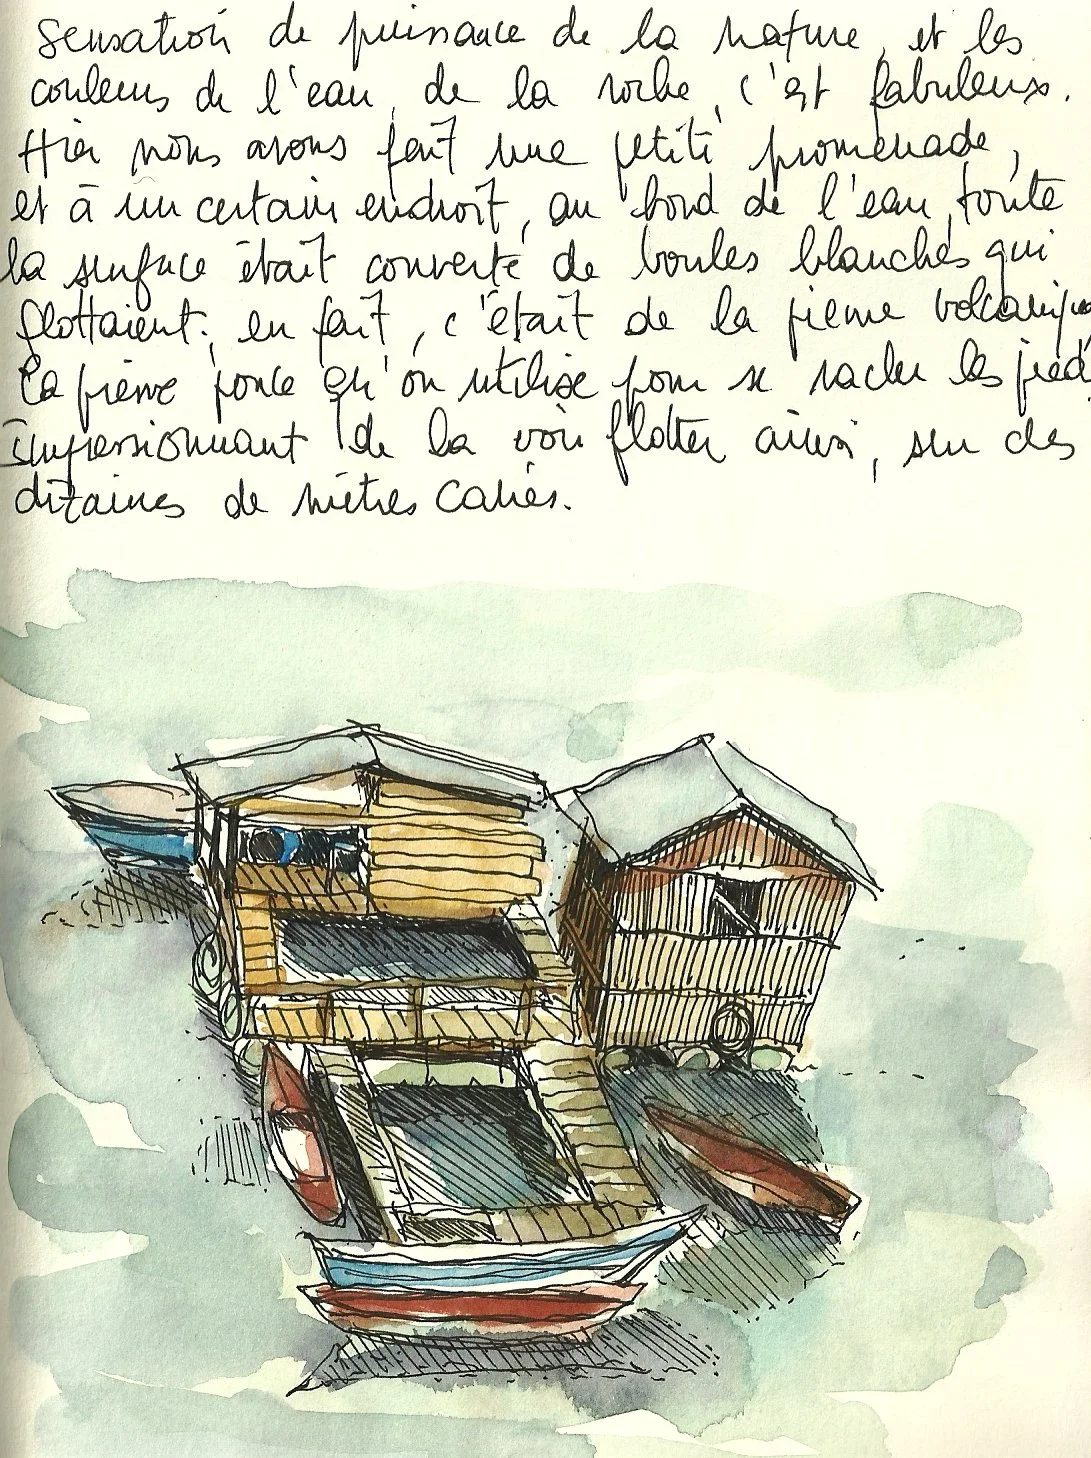 sensation de puissance de la nature, et les
couleurs de l'eau, de la roche, c'est fabuleux.
Hier nous avons fait une petite promenade,
et à un certain endroit, au bord de l'eau, toute
la surface était couverte de boules blanches qui
flottaient: en fait, c'était de la pierre volcaniqu
La pierre ponce qu'on utilise pour se racler les pied
Impressionnant de la voir flotter ainsi, sur des
dizaines de mètres carrés.